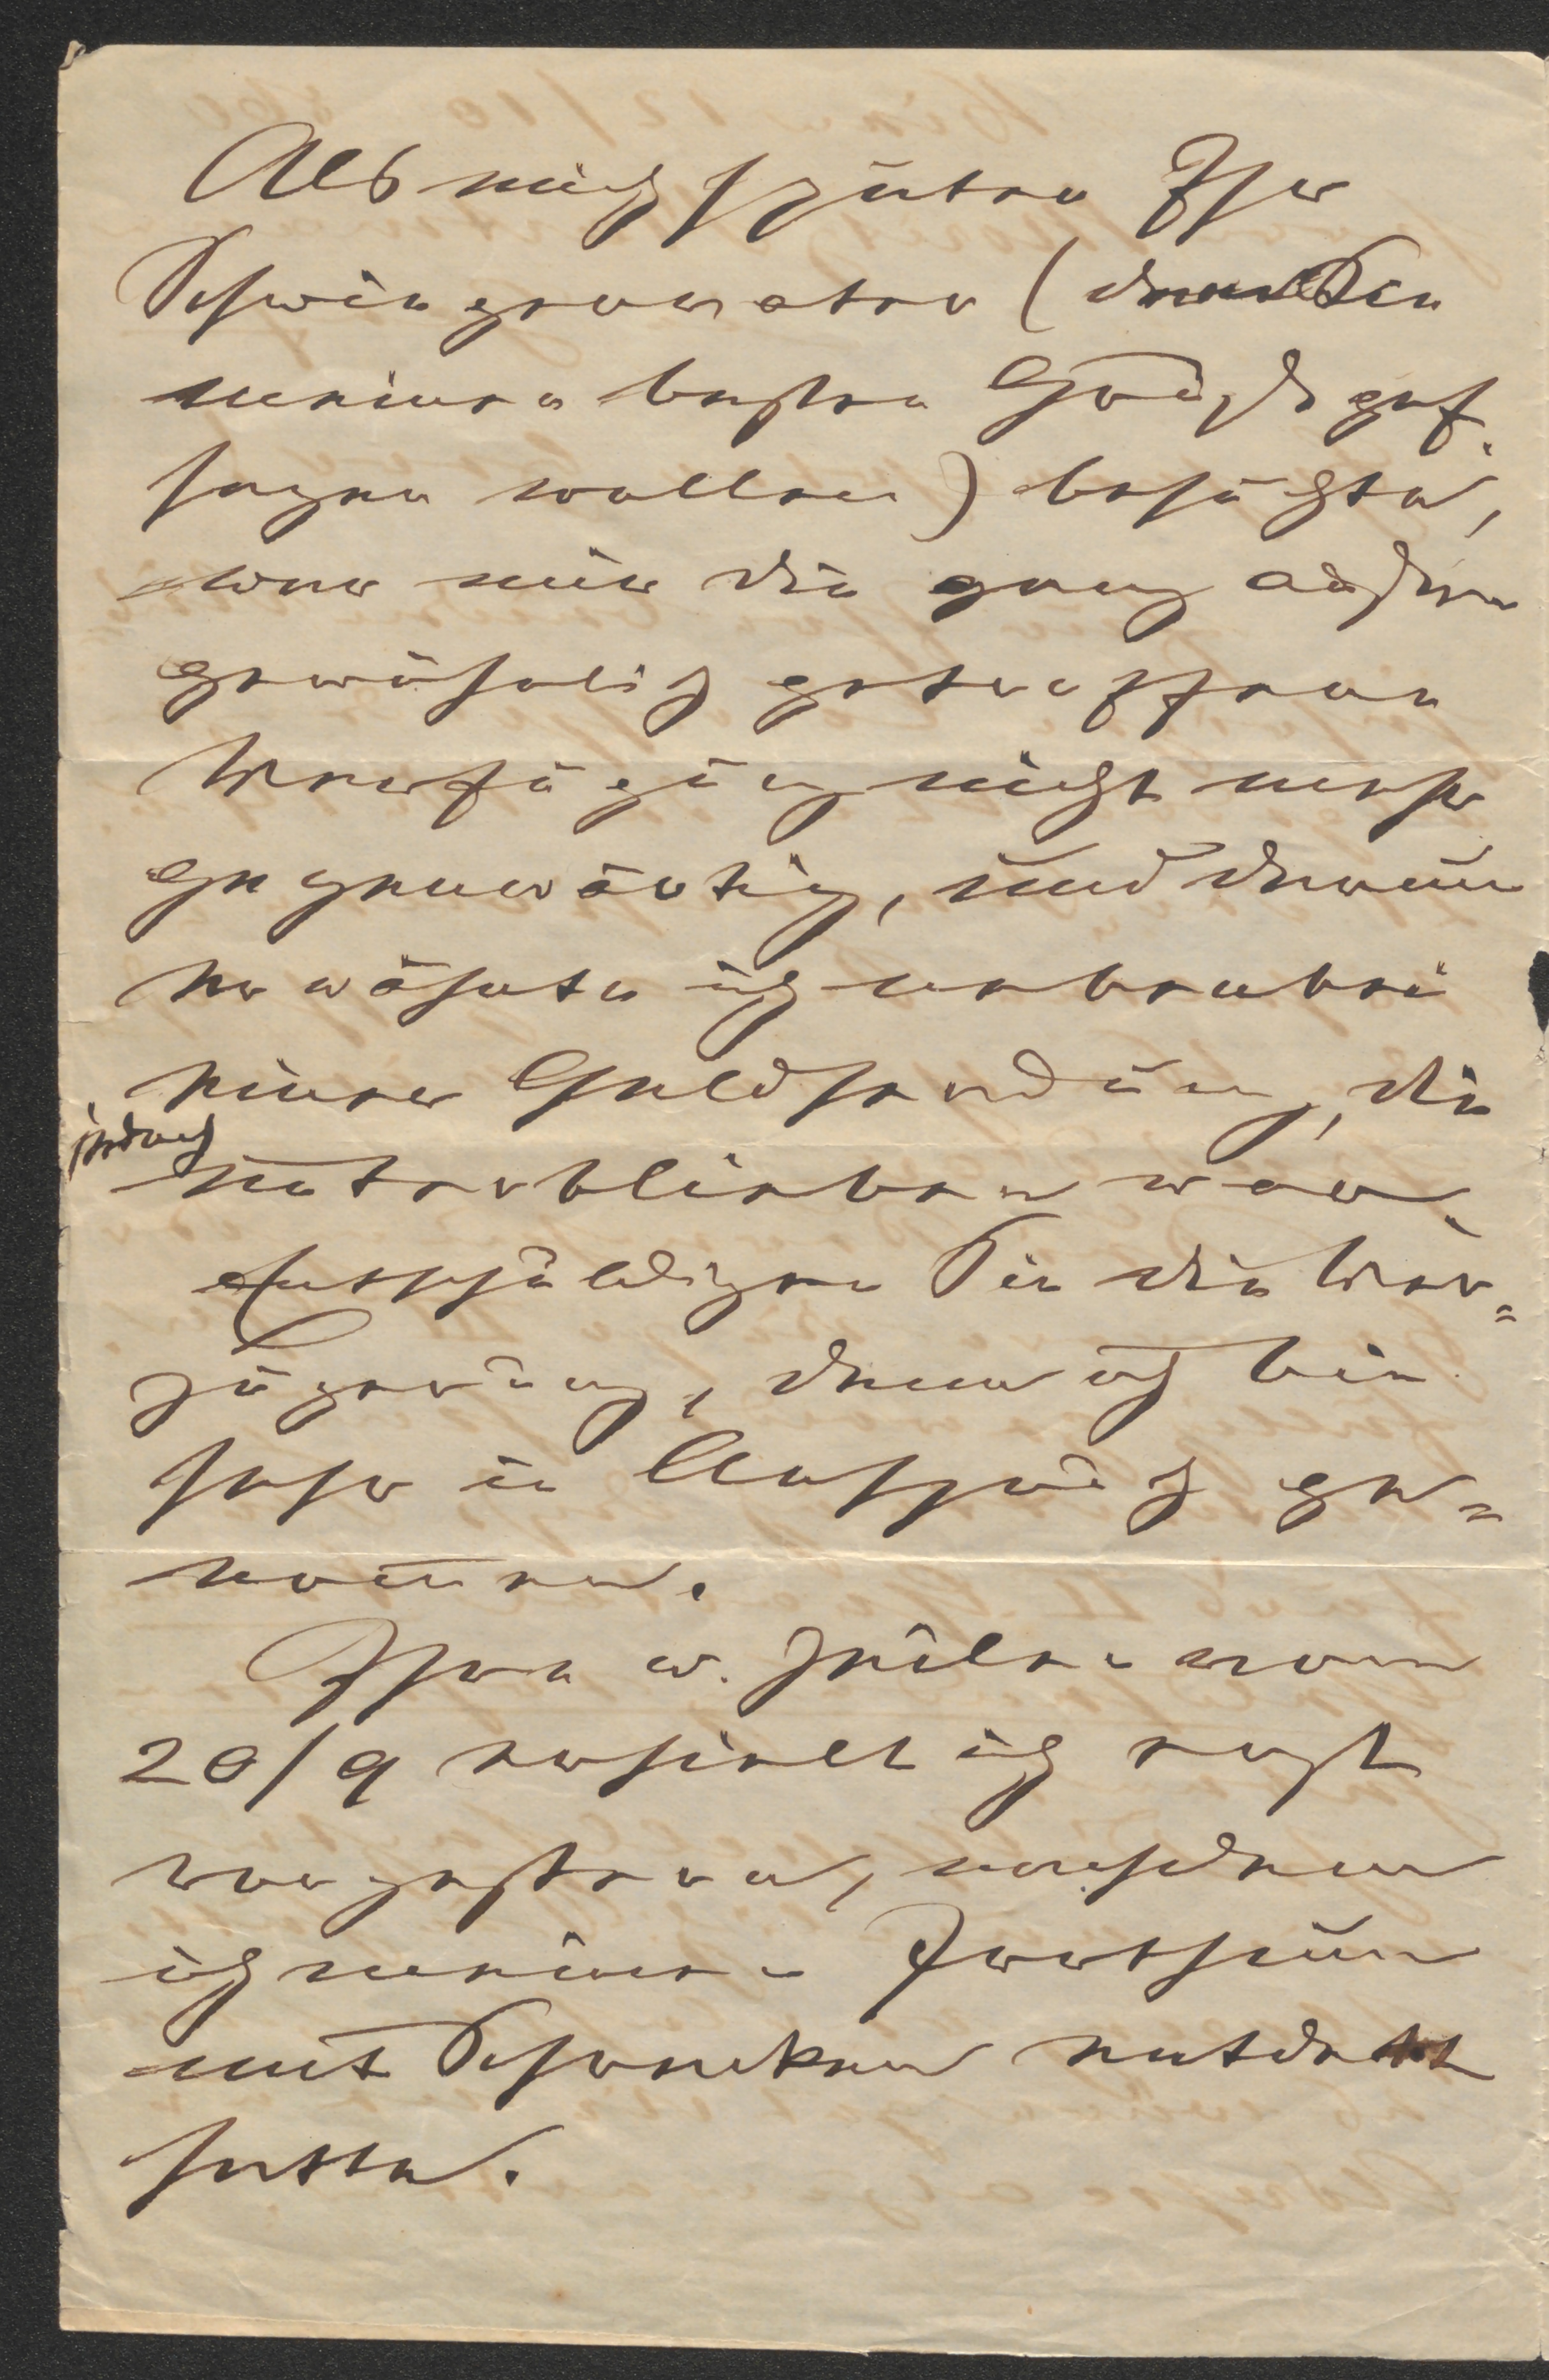 Als mich später Ihr
Schwiegervater (dem Sie
meinen besten Gruß gef.
sagen wollen) besuchte,
war mir die ganz außer
gewöhnlich getroffene
Verfügung nicht mehr
gegenwärtig, und darum
erwähnte ich nebenbei
einer Geldsendung, die
jedoch
unterblieben war.
Entschuldigen Sie die Ver=
zögerung, denn ich bin
sehr in Anspruch ge=
nommen.
Ihre w. Zeilen vom
20/9 erhielt ich erst
vorgestern, nachdem
ich meinen Irrthum
mit Schrecken entdeckt
hatte.